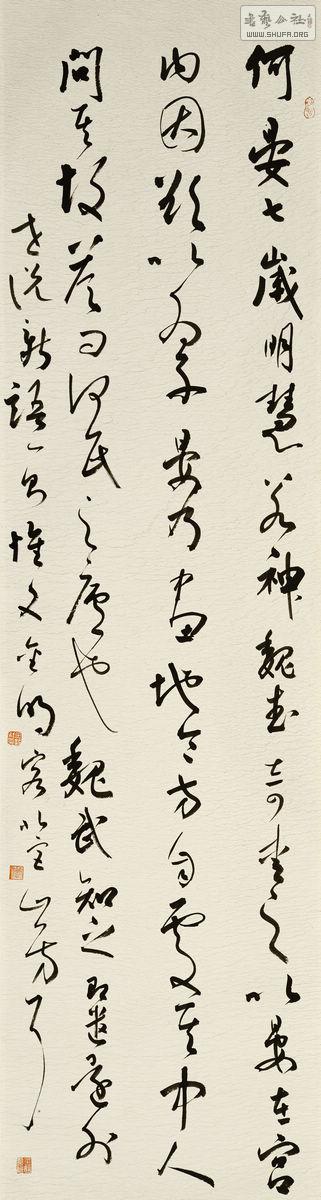 何晏七歲明慧若神魏武奇愛之以晏在宮
內因欲以為子晏乃畫地令方自處其中人
問其故答曰何氏之廬也魏武知之即遣還外
世說新語一則惟文金明客北宣山房
書藝公社
WWW.SHUFA.ORG